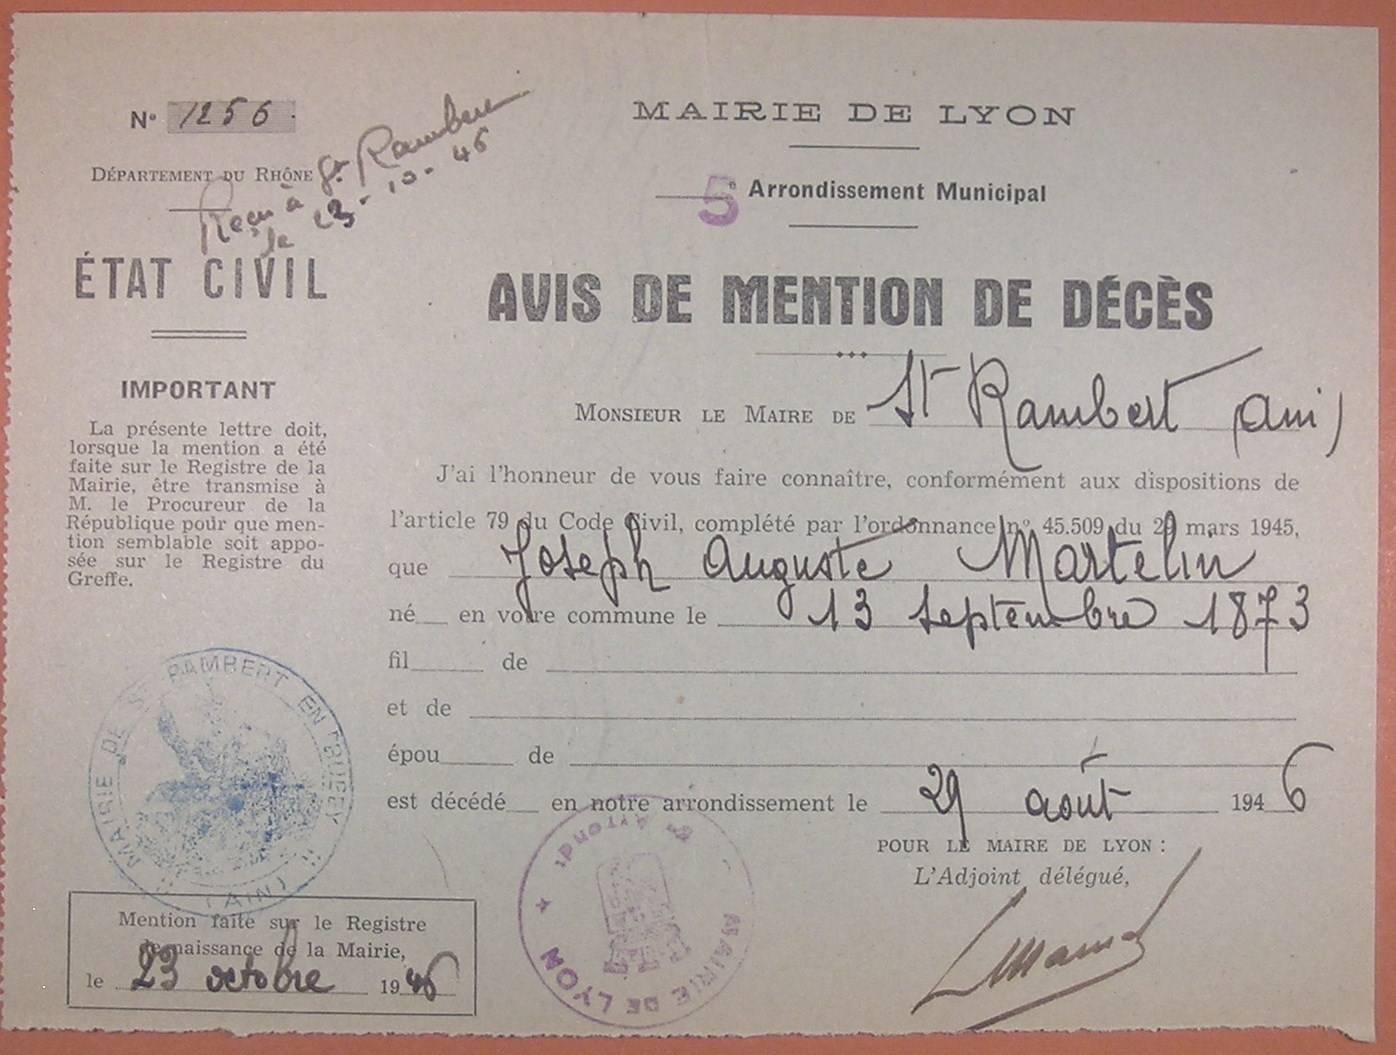 N° 1256
DÉPARTEMENT DU RHÔNE
Reçu à St Rambert
le 23-10-46
ÉTAT CIVIL
IMPORTANT
La présente lettre doit,
lorsque la mention a été
faite sur le Registre de la
Mairie, être transmise à
M. le Procureur de la
République pour que men-
tion semblable soit appo-
sée sur le Registre du
Greffe.
MAIRIE DE ST RAMBERT EN BUGEY (AIN)
Mention faite sur le Registre
de naissance de la Mairie,
le 23 octobre 1946
MAIRIE DE LYON
5e Arrondissement Municipal
AVIS DE MENTION DE DÉCÈS
MONSIEUR LE MAIRE DE St Rambert (Ain)
J'ai l'honneur de vous faire connaître, conformément aux dispositions de
l'article 79 du Code Civil, complété par l'ordonnance n° 45.509 du 29 mars 1945,
que Joseph Auguste Martelin
né en votre commune le 13 septembre 1873
fil de
et de
épou de
est décédé en notre arrondissement le 29 août 1946
POUR LE MAIRE DE LYON :
L'Adjoint délégué,
MAIRIE DE LYON